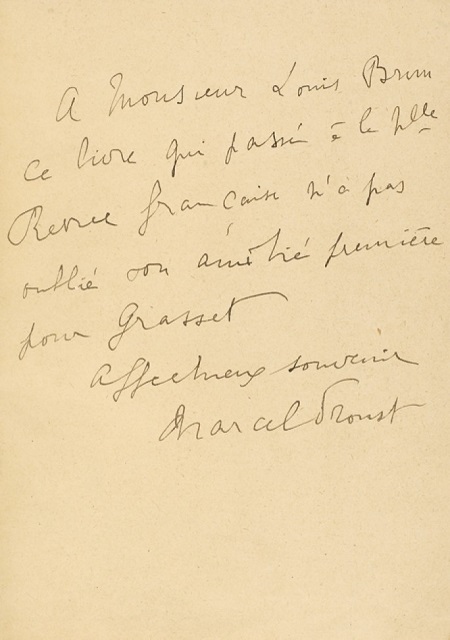 A Monsieur Louis Brun
Ce livre qui passé à la Nlle
Revue française n'a pas
oublié son amitié première
pour Grasset
Affectueux souvenir
Marcel Proust